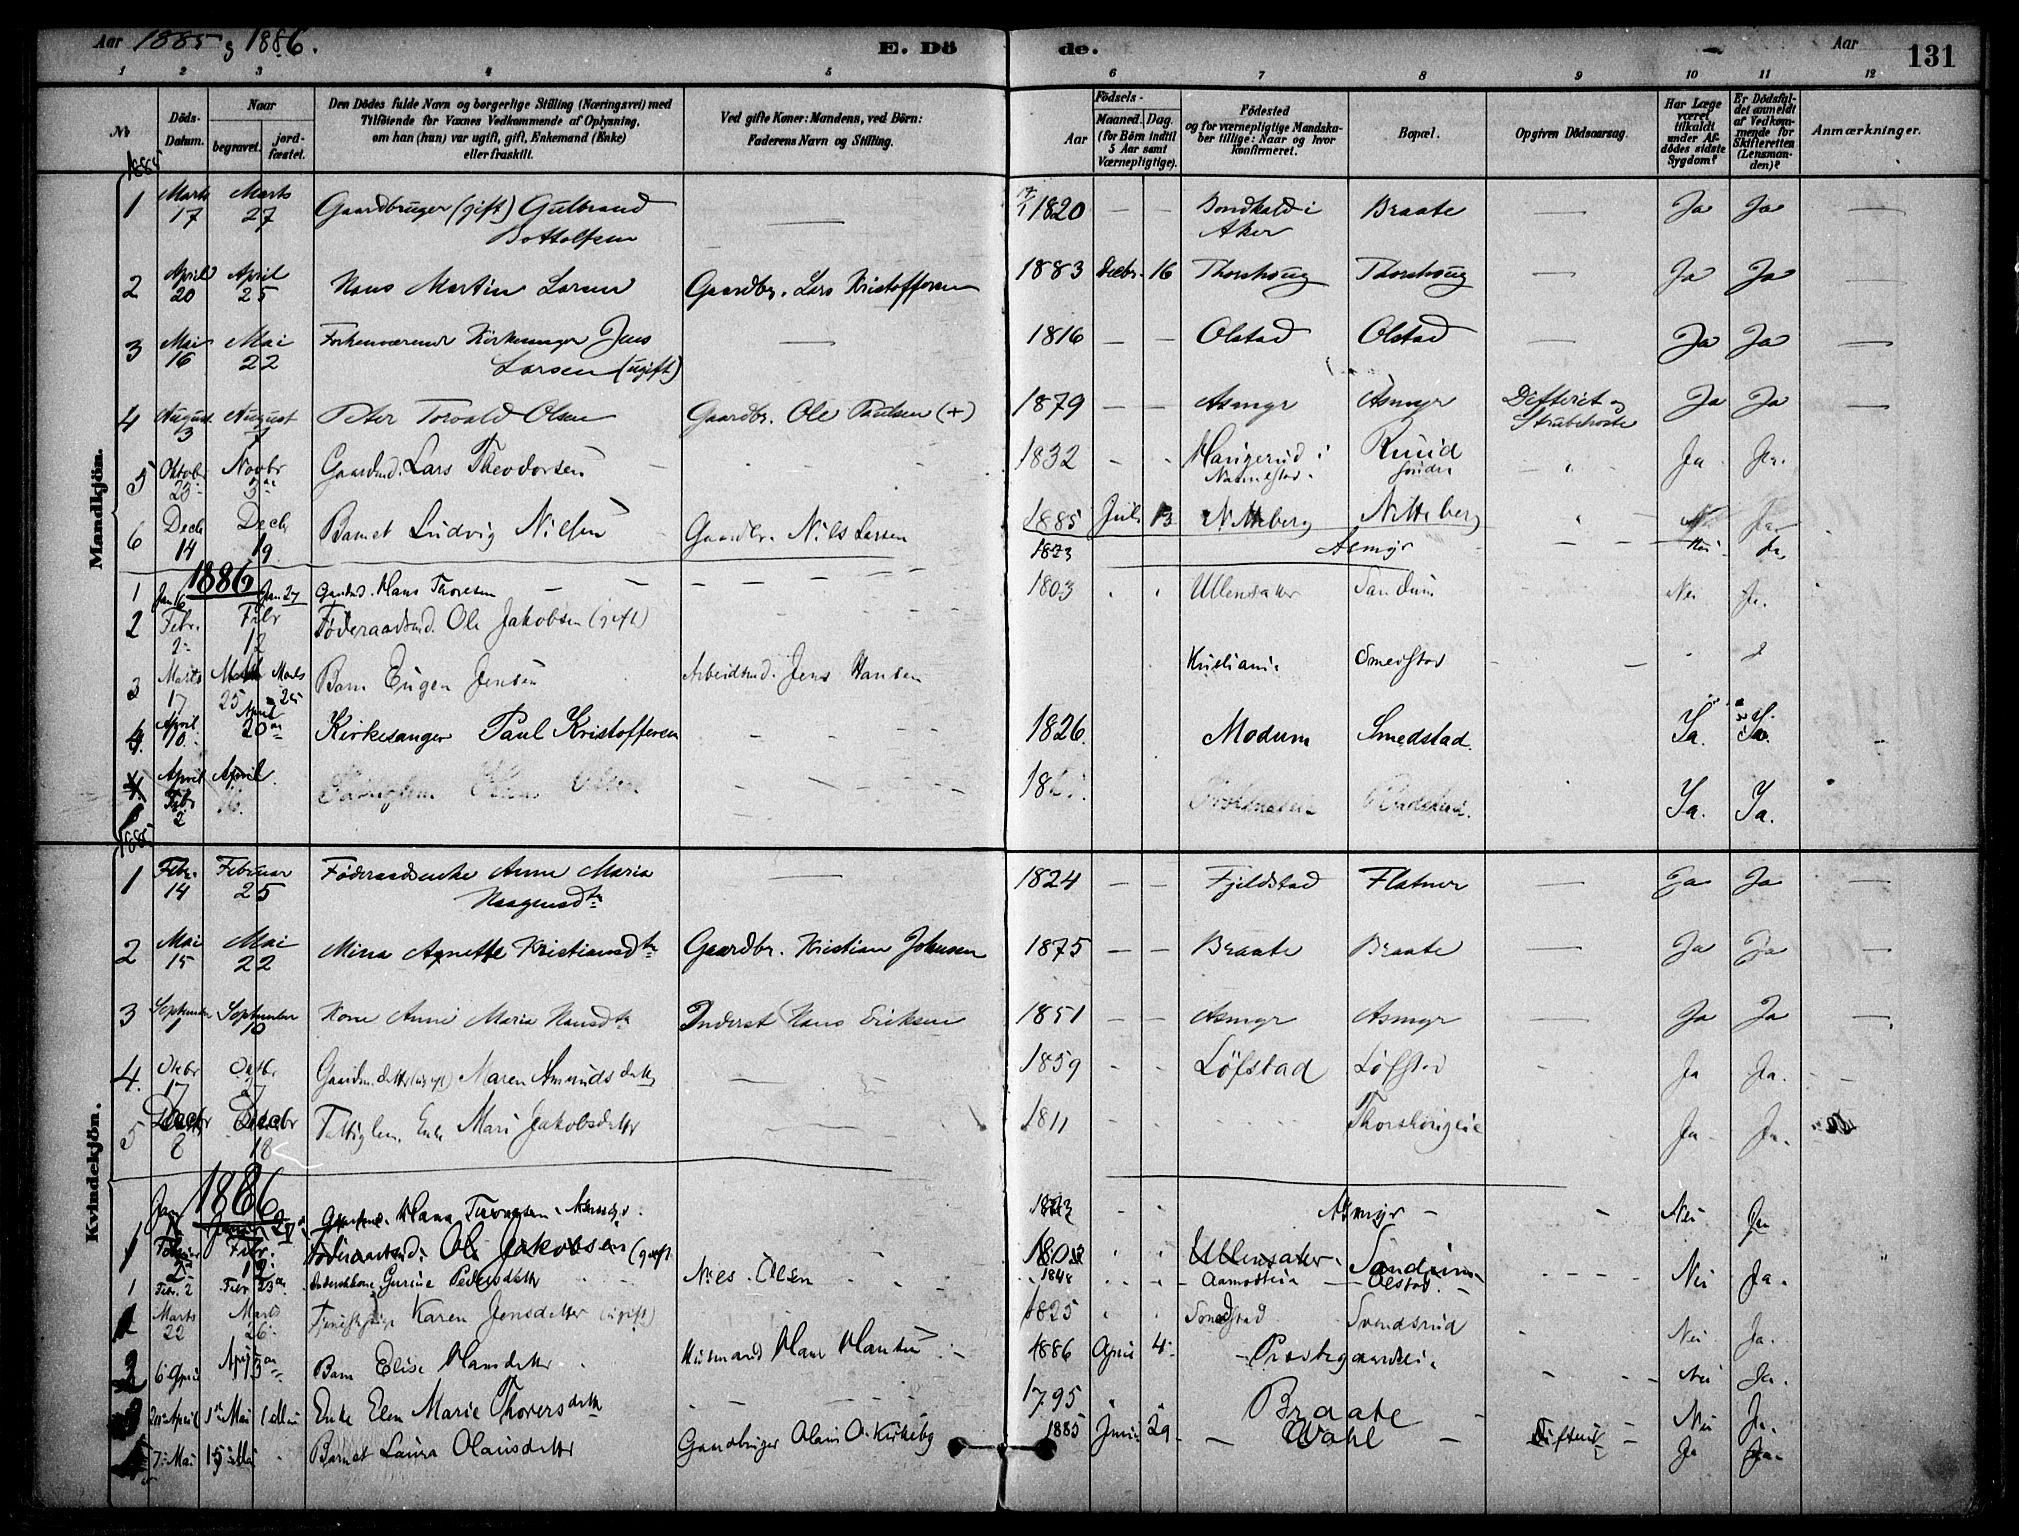 Aar 1885 & 1886. E. Dö de. Aar 131
1 2 3 4 5 6 7 8 9 10 11 12
№ Döds-Datum. Naar begravet. jord-fæstet.
Den Dödes fulde Navn og borgerlige Stilling (Næringsvei) med
Tilföiende for Voxnes Vedkommende af Oplysning,
om han (hun) var ugift, gift, Enkemand (Enke)
eller fraskilt.
Ved gifte Koner: Mandens, ved Börn:
Faderens Navn og Stilling.
Födsels-
Aar Maaned. Dag.
(for Börn indtil
5 Aar samt
Værnepligtige).
Födested
og for værnepligtige Mandska-
ber tillige: Naar og hvor
konfirmeret.
Bopæl.
Opgiven Dödsaarsag.
Har Læge
været
tilkaldt
under Af-
dödes sidste
Sygdom?
Er Dödsfal-
det anmeldt
af Vedkom-
mende for
Skifteretten
(Lensman-
den)?
Anmærkninger.
Mandkjön.
1885
1 Marts 17 Marts 27 Gaardbruger (gift) Gulbrand Bottolfsen — 1820 — — Aker Braate — Ja Ja —
2 April 20 April 25 Hans Martin Larsen Gaardbr. Lars Kristoffersen 1883 Decbr. 16 Thorshoug Thorshoug — Ja Ja —
3 Mai 16 Mai 22 Forhenværende Kirkesanger Jens Larsen (ugift) — 1816 — — Olstad Olstad — Ja Ja —
4 August 3 August 7 Peter Torvald Olsen Gaardbr. Ole Paulsen (+) 1879 — — Asmyr Asmyr Difterit og Strubehoste Ja Ja —
5 Oktobr 23 Novbr 3 Gaardmd. Lars Theodorsen 1832 Haugerud i Nannestad Ruud søndre Ja Ja.
6 Decb 14 Decb 19. Barnet Ludvig Nilsen Gaardbr. Nils Larsen 1885 Juli 13 Nitteberg Nitteberg Ja
1886
1 Jan 6 Jan 27 Gaardmd. Hans Thoresen 1823 Asmyr Nei Ja
2 Febr. 2 Febr 12 Føderaadsmd. Ole Jakobsen (gift) 1803 Ullensaker Sandum Nei Ja.
3 Marts 17 Marts 25 Barn Eugen Jensen Arbeidsmd. Jens Hansen Kristiania Smedstad
4 April 10. April 20 Kirkesanger Paul Kristoffersen 1826. Modum Smedstad. Ja. Ja.
April April. Ja. Ja.
Febr 2
Kvindekjön.
1885
1 Febr. 14 Februar 25 Føderaadsenke Anne Maria Haagensdtr — 1824 — — Fjeldstad Flatner — Ja Ja —
2 Mai 15 Mai 22 Mina Agnette Kristiansdtr Gaardbr. Kristian Johnsen 1875 — — Braate Braate — Ja Ja —
3 September 1 September 10 Kone Anne Maria Hansdtr Inderst Hans Eriksen 1851 — — Asmyr Asmyr — Ja Ja —
4. Oktbr 17 Oktbr 27 Gaardm.datter (ugift) Maren Amundsdatter 1859 Løfstad Løfstad Ja Ja.
5 Decbr 8 Decbr 18 Fattiglem. Enke Mari Jakobsdatter 1811 Thorshougeie Ja Ja.
1886
1 Jan Hans Thoresen. Asmyr. 1823 Asmyr Nei Ja
Februar Febr. 12 Føderaadsmd. Ole Jakobsen (gift 1803 Ullensaker. Sandum
1 Febr. 2 Febr 23 Inderstkone Gurine Pedersdatter Nils Olsen 1848 Aamodteie Olstad. Nei Ja.
Marts 22 Marts 26. Karen Jensdatter (ugift) 1825 Smedstad Svendsrud Nei Ja.
6 April April 13 Barn Elise Hansdatter Husmand Hans Hansen 1886 April 4. Præstegaardseie Nei Ja.
20 April 1 Mai Enke Elen Marie Thorersdatter 1795 Braate Nei Ja.
7 Mai 15 Mai Barnet Laura Olausdatter Gaardbruger Olaus O. Kirkeby 1885 Juni 29 Wahl Difterit Ja Ja.